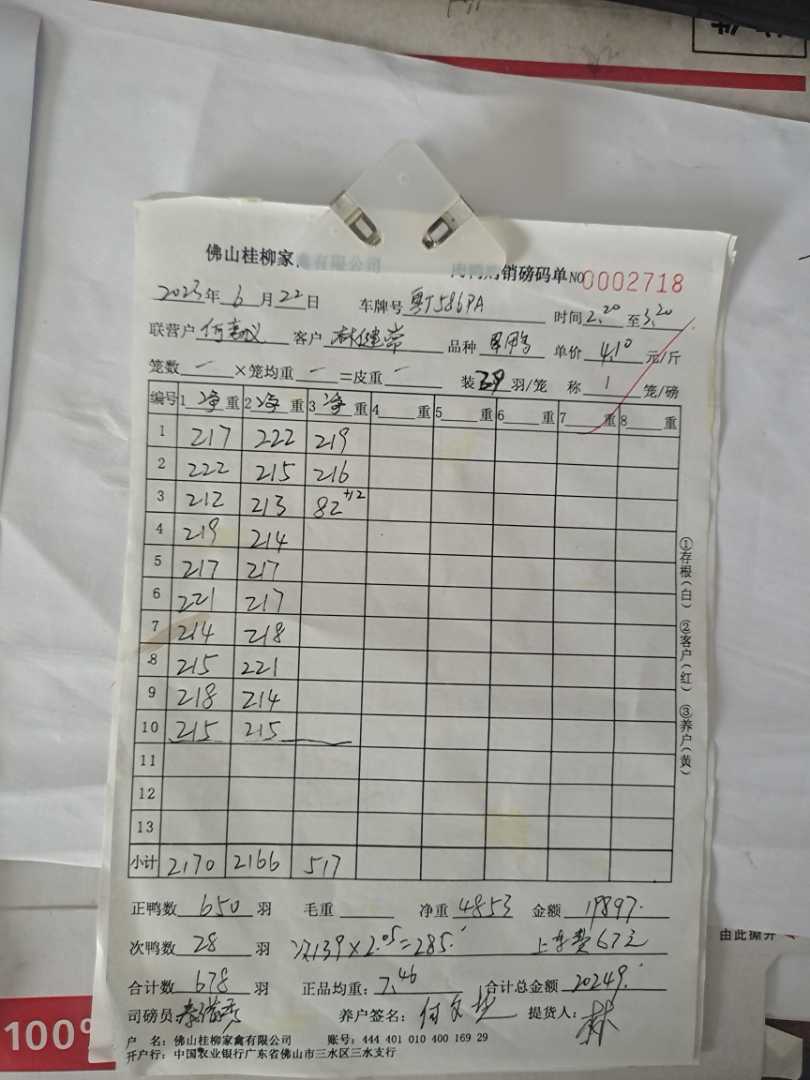 佛山桂柳家禽有限公司 销磅码单 NO 0002718
2023年 6月 22日 车牌号 粤J586PA 时间 2.20 至 3.20
联营户 客户 品种 单价 4.10 元/斤
笼数 — ×笼均重 — =皮重 — 装 羽/笼 称 1 笼/磅
编号 1 净 重 2 净 重 3 净 重 4 重 5 重 6 重 7 重 8 重
1 217 222 219
2 222 215 216
3 212 213 82+12
4 219 214
5 217 217
6 221 217
7 214 218
8 215 221
9 218 214
10 215 215
11
12
13
小计 2170 2166 517
①存根(白) ②客户(红) ③养户(黄)
正鸭数 650 羽 毛重 净重 4853 金额 19897.
次鸭数 28 羽 次139×2.05=285. 上车费67元
合计数 678 羽 正品均重: 7.46 合计总金额 20249.
司磅员 养户签名: 提货人: 林
户 名: 佛山桂柳家禽有限公司 账号: 444 401 010 400 169 29
开户行: 中国农业银行广东省佛山市三水区三水支行
由此撕开
100%